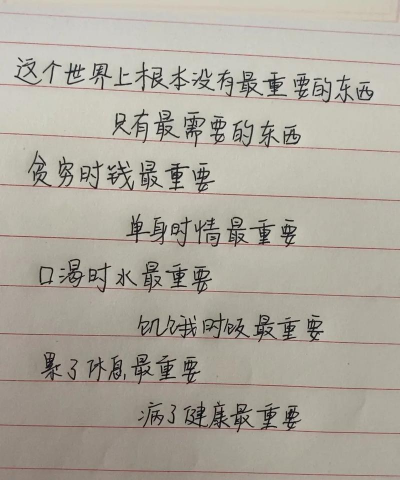 这个世界上根本没有最重要的东西
只有最需要的东西
贫穷时钱最重要
单身时情最重要
口渴时水最重要
饥饿时饭最重要
累了休息最重要
病了健康最重要